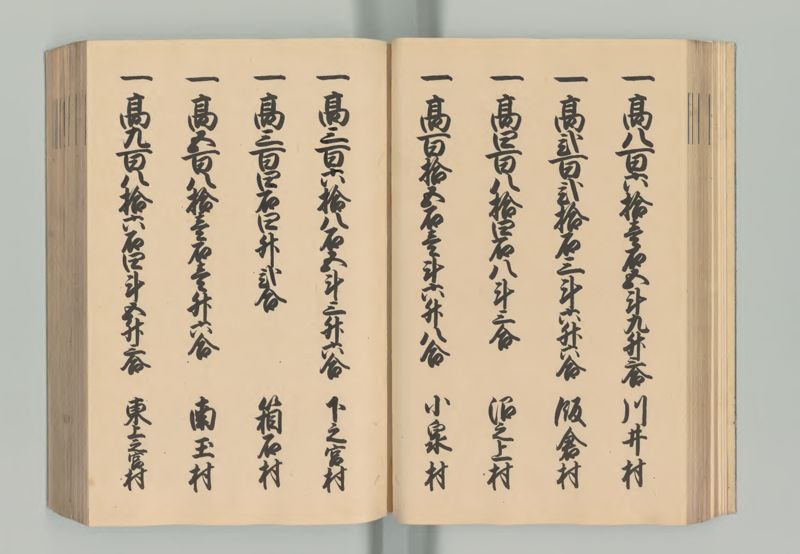 一高八百六拾壱石五斗九升六合 川井村
一高弐百弐拾石三斗六升六合 飯倉村
一高四百八拾四石八斗三合 沼之上村
一高百拾五石壱斗六升八合 小泉村
一高三百六拾八石五斗三升六合 下之宮村
一高三百四石四升弐合 箱石村
一高五百八拾壱石壱升六合 南玉村
一高九百八拾六石四斗五升六合 東上之宮村